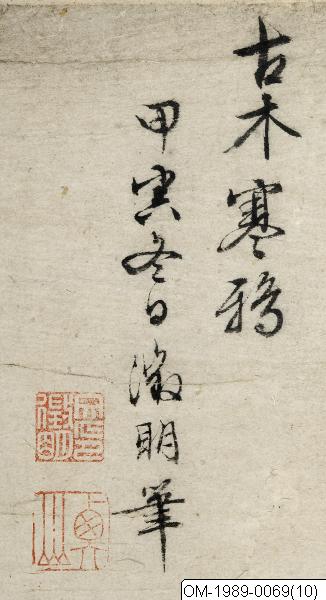 古木寒鴉
甲寅冬日徵明筆
徵明印
衡山
OM-1989-0069(10)